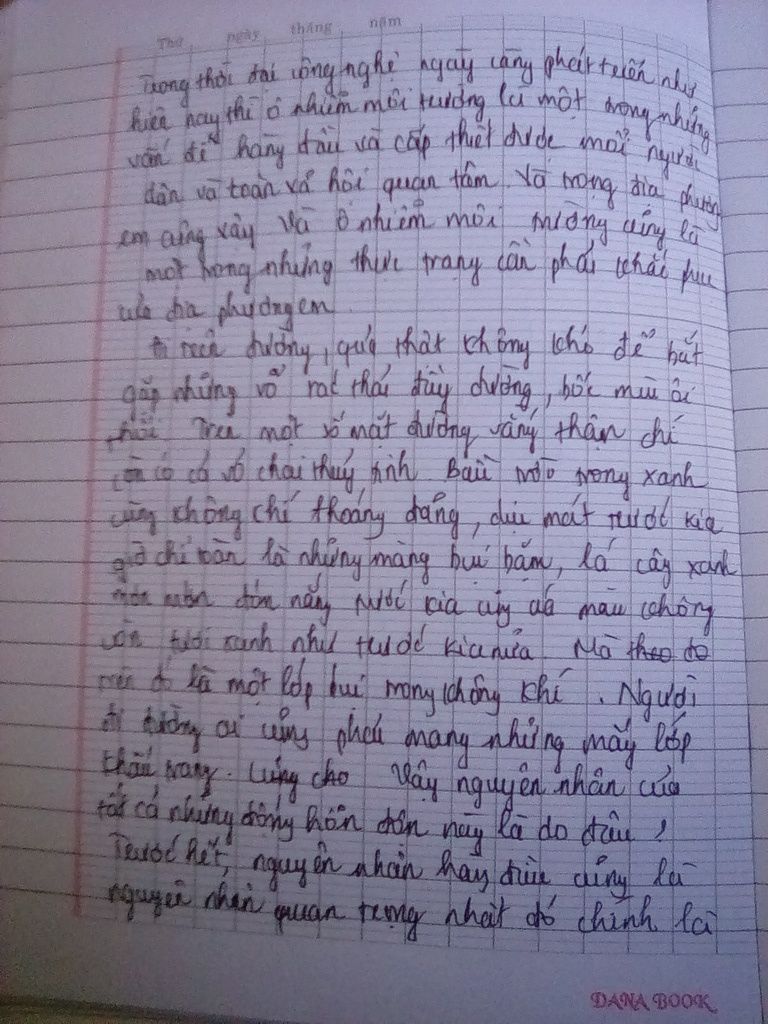 Thứ ngày tháng năm
Trong thời đại công nghệ ngày càng phát triển như
hiện nay thì ô nhiễm môi trường là một trong những
vấn đề hàng đầu và cấp thiết được mỗi người
dân và toàn xã hội quan tâm. Và trong địa phương
em cũng vậy Và ô nhiễm môi trường cũng là
một trong những thực trạng cần phải khắc phục
của địa phương em
Đi trên đường, quả thật không khó để bắt
gặp những vỏ rác thải đầy đường, bốc mùi ôi
thối Trên một số mặt đường vắng thậm chí
còn có cả vỏ chai thủy tinh Bầu trời trong xanh
cùng không chí thoáng đãng, dịu mát trước kia
giờ chỉ toàn là những màng bụi bặm, lá cây xanh
đón nắng trước kia cũng đã màu không
còn tươi xanh như trước kia nữa. Mà theo đó
trên đó là một lớp bụi trong không khí. Người
đi đường ai cũng phải mang những mấy lớp
khẩu trang. Cũng cho Vậy nguyên nhân của
tất cả những đống hỗn độn này là do đâu?
Trước hết, nguyên nhân hàng đầu cũng là
nguyên nhân quan trọng nhất đó chính là
DANA BOOK